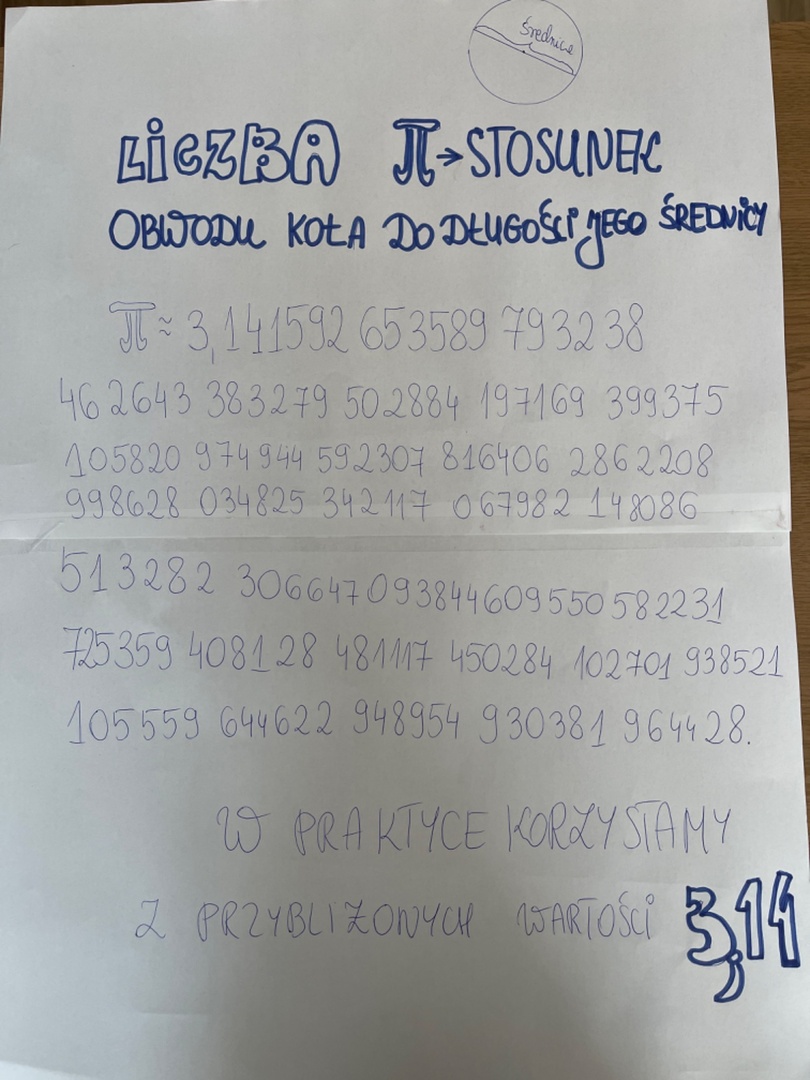 średnica
LiCZBA π→STOSUNEK
OBWODU KOŁA DO DŁUGOŚCI JEGO ŚREDNICY
π ≈ 3,141592 653589 793238
462643 383279 502884 197169 399375
105820 974944 592307 816406 2862208
998628 034825 342117 067982 148086
513282 306647 093844609550582231
725359 408128 481117 450284 102701 938521
105559 644622 948954 930381 964428.
W PRAKTYCE KORZYSTAMY
Z PRZYBLIŻONYCH WARTOŚCI 3,14